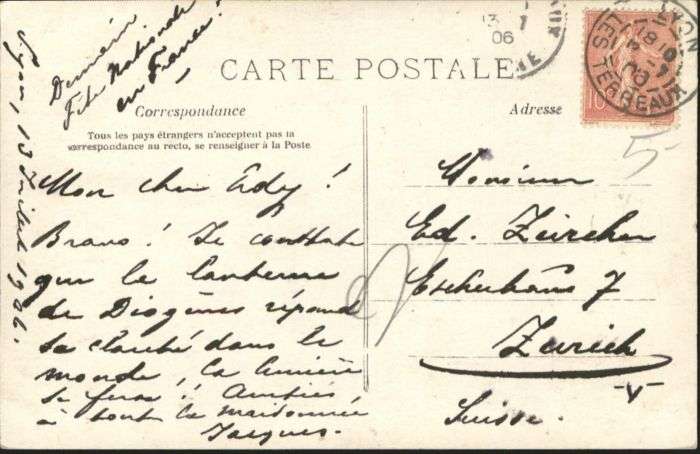 Demain
Fête Nationale
en France!
Lyon, 13 Juillet 1906.
13 7
06
LYON
LES TERREAUX
10
CARTE POSTALE
Correspondance
Adresse
Tous les pays étrangers n'acceptent pas la
correspondance au recto, se renseigner à la Poste
5-
Mon cher Edy!
Bravo! Je constate
que la lanterne
de Diogènes répand
sa clarté dans le
monde, la lumière
se fera! Amitiés
à toute la maisonnée
Jacques.
Monsieur
Ed. Zürcher
Escherhäus 7
Zurich
-V-
Suisse.